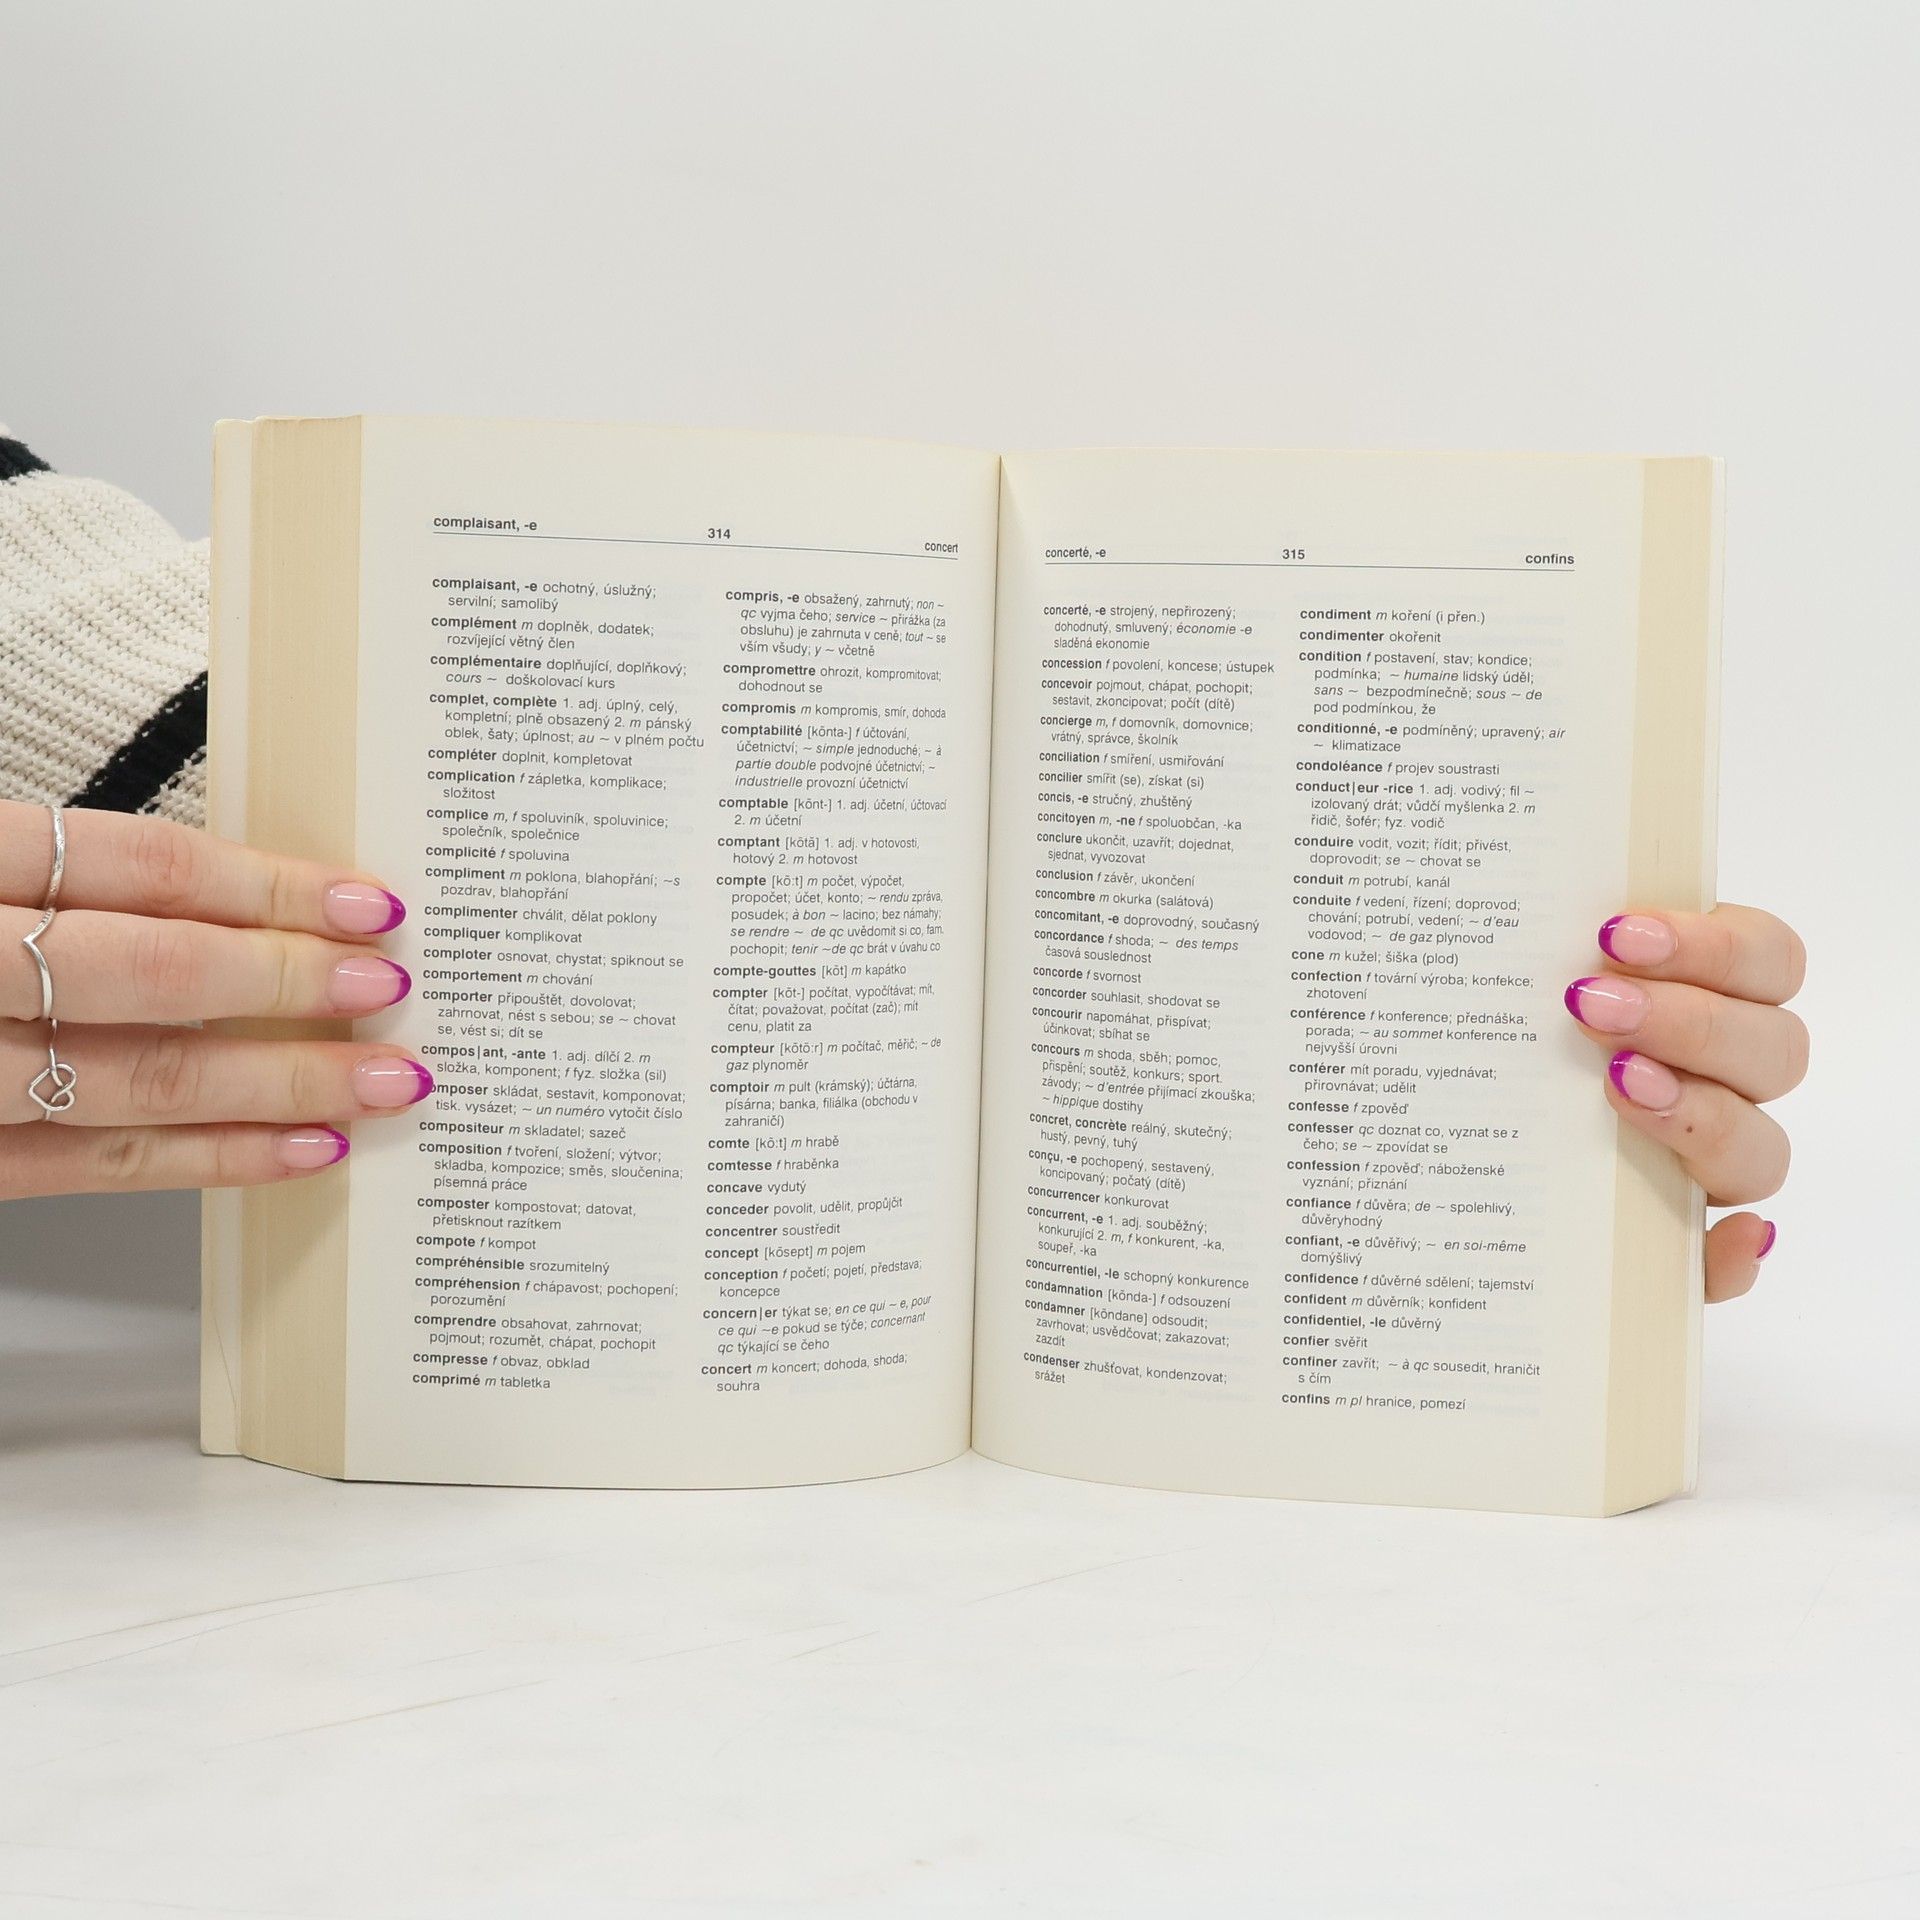 complaisant, -e 314 concert
complaisant, -e ochotný, úslužný;
servilní; samolibý
complément m doplněk, dodatek;
rozvíjející větný člen
complémentaire doplňující, doplňkový;
cours ~ doškolovací kurs
complet, complète 1. adj. úplný, celý,
kompletní; plně obsazený 2. m pánský
oblek, šaty; úplnost; au ~ v plném počtu
compléter doplnit, kompletovat
complication f zápletka, komplikace;
složitost
complice m, f spoluviník, spoluvinice;
společník, společnice
complicité f spoluvina
compliment m poklona, blahopřání; ~s
pozdrav, blahopřání
complimenter chválit, dělat poklony
compliquer komplikovat
comploter osnovat, chystat; spiknout se
comportement m chování
comporter připouštět, dovolovat;
zahrnovat, nést s sebou; se ~ chovat
se, vést si; dít se
compos|ant, -ante 1. adj. dílčí 2. m
složka, komponent; f fyz. složka (sil)
mposer skládat, sestavit, komponovat;
tisk. vysázet; ~ un numéro vytočit číslo
compositeur m skladatel; sazeč
composition f tvoření, složení; výtvor;
skladba, kompozice; směs, sloučenina;
písemná práce
composter kompostovat; datovat,
přetisknout razítkem
compote f kompot
compréhénsible srozumitelný
compréhension f chápavost; pochopení;
porozumění
comprendre obsahovat, zahrnovat;
pojmout; rozumět, chápat, pochopit
compresse f obvaz, obklad
comprimé m tabletka
compris, -e obsažený, zahrnutý; non ~
qc vyjma čeho; service ~ přirážka (za
obsluhu) je zahrnuta v ceně; tout ~ se
vším všudy; y ~ včetně
compromettre ohrozit, kompromitovat;
dohodnout se
compromis m kompromis, smír, dohoda
comptabilité [kõnta-] f účtování,
účetnictví; ~ simple jednoduché; ~ à
partie double podvojné účetnictví; ~
industrielle provozní účetnictví
comptable [kõnt-] 1. adj. účetní, účtovací
2. m účetní
comptant [kõtã] 1. adj. v hotovosti,
hotový 2. m hotovost
compte [kõ:t] m počet, výpočet,
propočet; účet, konto; ~ rendu zpráva,
posudek; à bon ~ lacino; bez námahy;
se rendre ~ de qc uvědomit si co, fam.
pochopit; tenir ~de qc brát v úvahu co
compte-gouttes [kõt] m kapátko
compter [kõt-] počítat, vypočítávat; mít,
čítat; považovat, počítat (zač); mít
cenu, platit za
compteur [kõtö:r] m počítač, měřič; ~ de
gaz plynoměr
comptoir m pult (krámský); účtárna,
písárna; banka, filiálka (obchodu v
zahraničí)
comte [kõ:t] m hrabě
comtesse f hraběnka
concave vydutý
conceder povolit, udělit, propůjčit
concentrer soustředit
concept [kõsept] m pojem
conception f početí; pojetí, představa;
koncepce
concern|er týkat se; en ce qui ~ e, pour
ce qui ~e pokud se týče; concernant
qc týkající se čeho
concert m koncert; dohoda, shoda;
souhra
concerté, -e 315 confins
concerté, -e strojený, nepřirozený;
dohodnutý, smluvený; économie -e
sladěná ekonomie
concession f povolení, koncese; ústupek
concevoir pojmout, chápat, pochopit;
sestavit, zkoncipovat; počít (dítě)
concierge m, f domovník, domovnice;
vrátný, správce, školník
conciliation f smíření, usmiřování
concilier smířit (se), získat (si)
concis, -e stručný, zhuštěný
concitoyen m, -ne f spoluobčan, -ka
conclure ukončit, uzavřít; dojednat,
sjednat, vyvozovat
conclusion f závěr, ukončení
concombre m okurka (salátová)
concomitant, -e doprovodný, současný
concordance f shoda; ~ des temps
časová souslednost
concorde f svornost
concorder souhlasit, shodovat se
concourir napomáhat, přispívat;
účinkovat; sbíhat se
concours m shoda, sběh; pomoc,
přispění; soutěž, konkurs; sport.
závody; ~ d'entrée přijímací zkouška;
~ hippique dostihy
concret, concrète reálný, skutečný;
hustý, pevný, tuhý
conçu, -e pochopený, sestavený,
koncipovaný; počatý (dítě)
concurrencer konkurovat
concurrent, -e 1. adj. souběžný;
konkurující 2. m, f konkurent, -ka,
soupeř, -ka
concurrentiel, -le schopný konkurence
condamnation [kõnda-] f odsouzení
condamner [kõndane] odsoudit;
zavrhovat; usvědčovat; zakazovat;
zazdít
condenser zhušťovat, kondenzovat;
srážet
condiment m koření (i přen.)
condimenter okořenit
condition f postavení, stav; kondice;
podmínka; ~ humaine lidský úděl;
sans ~ bezpodmínečně; sous ~ de
pod podmínkou, že
conditionné, -e podmíněný; upravený; air
~ klimatizace
condoléance f projev soustrasti
conduct|eur -rice 1. adj. vodivý; fil ~
izolovaný drát; vůdčí myšlenka 2. m
řidič, šofér; fyz. vodič
conduire vodit, vozit; řídit; přivést,
doprovodit; se ~ chovat se
conduit m potrubí, kanál
conduite f vedení, řízení; doprovod;
chování; potrubí, vedení; ~ d'eau
vodovod; ~ de gaz plynovod
cone m kužel; šiška (plod)
confection f tovární výroba; konfekce;
zhotovení
conférence f konference; přednáška;
porada; ~ au sommet konference na
nejvyšší úrovni
conférer mít poradu, vyjednávat;
přirovnávat; udělit
confesse f zpověď
confesser qc doznat co, vyznat se z
čeho; se ~ zpovídat se
confession f zpověď; náboženské
vyznání; přiznání
confiance f důvěra; de ~ spolehlivý,
důvěryhodný
confiant, -e důvěřivý; ~ en soi-même
domýšlivý
confidence f důvěrné sdělení; tajemství
confident m důvěrník; konfident
confidentiel, -le důvěrný
confier svěřit
confiner zavřít; ~ à qc sousedit, hraničit
s čím
confins m pl hranice, pomezí